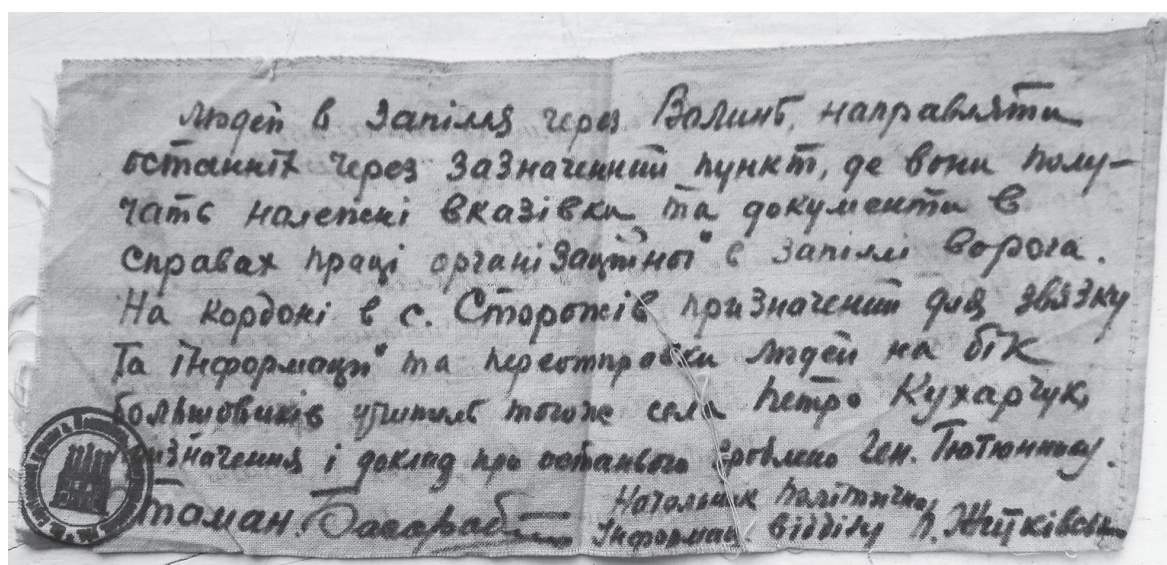 людей в запілля через Волинь, направляти
останніх через зазначений пункт, де вони полу-
чать належні вказівки та документи в
справах праці організаційної в запіллі ворога.
На кордоні в с. Сторожів призначений для звязку
та інформації та переотправки людей на бік
большовиків учитель тогоже села Петро Кухарчук,
призначення і доклад про останього зроблено Ген. Тютюннику.
Отаман. Начальник Політично
Інформац. відділу